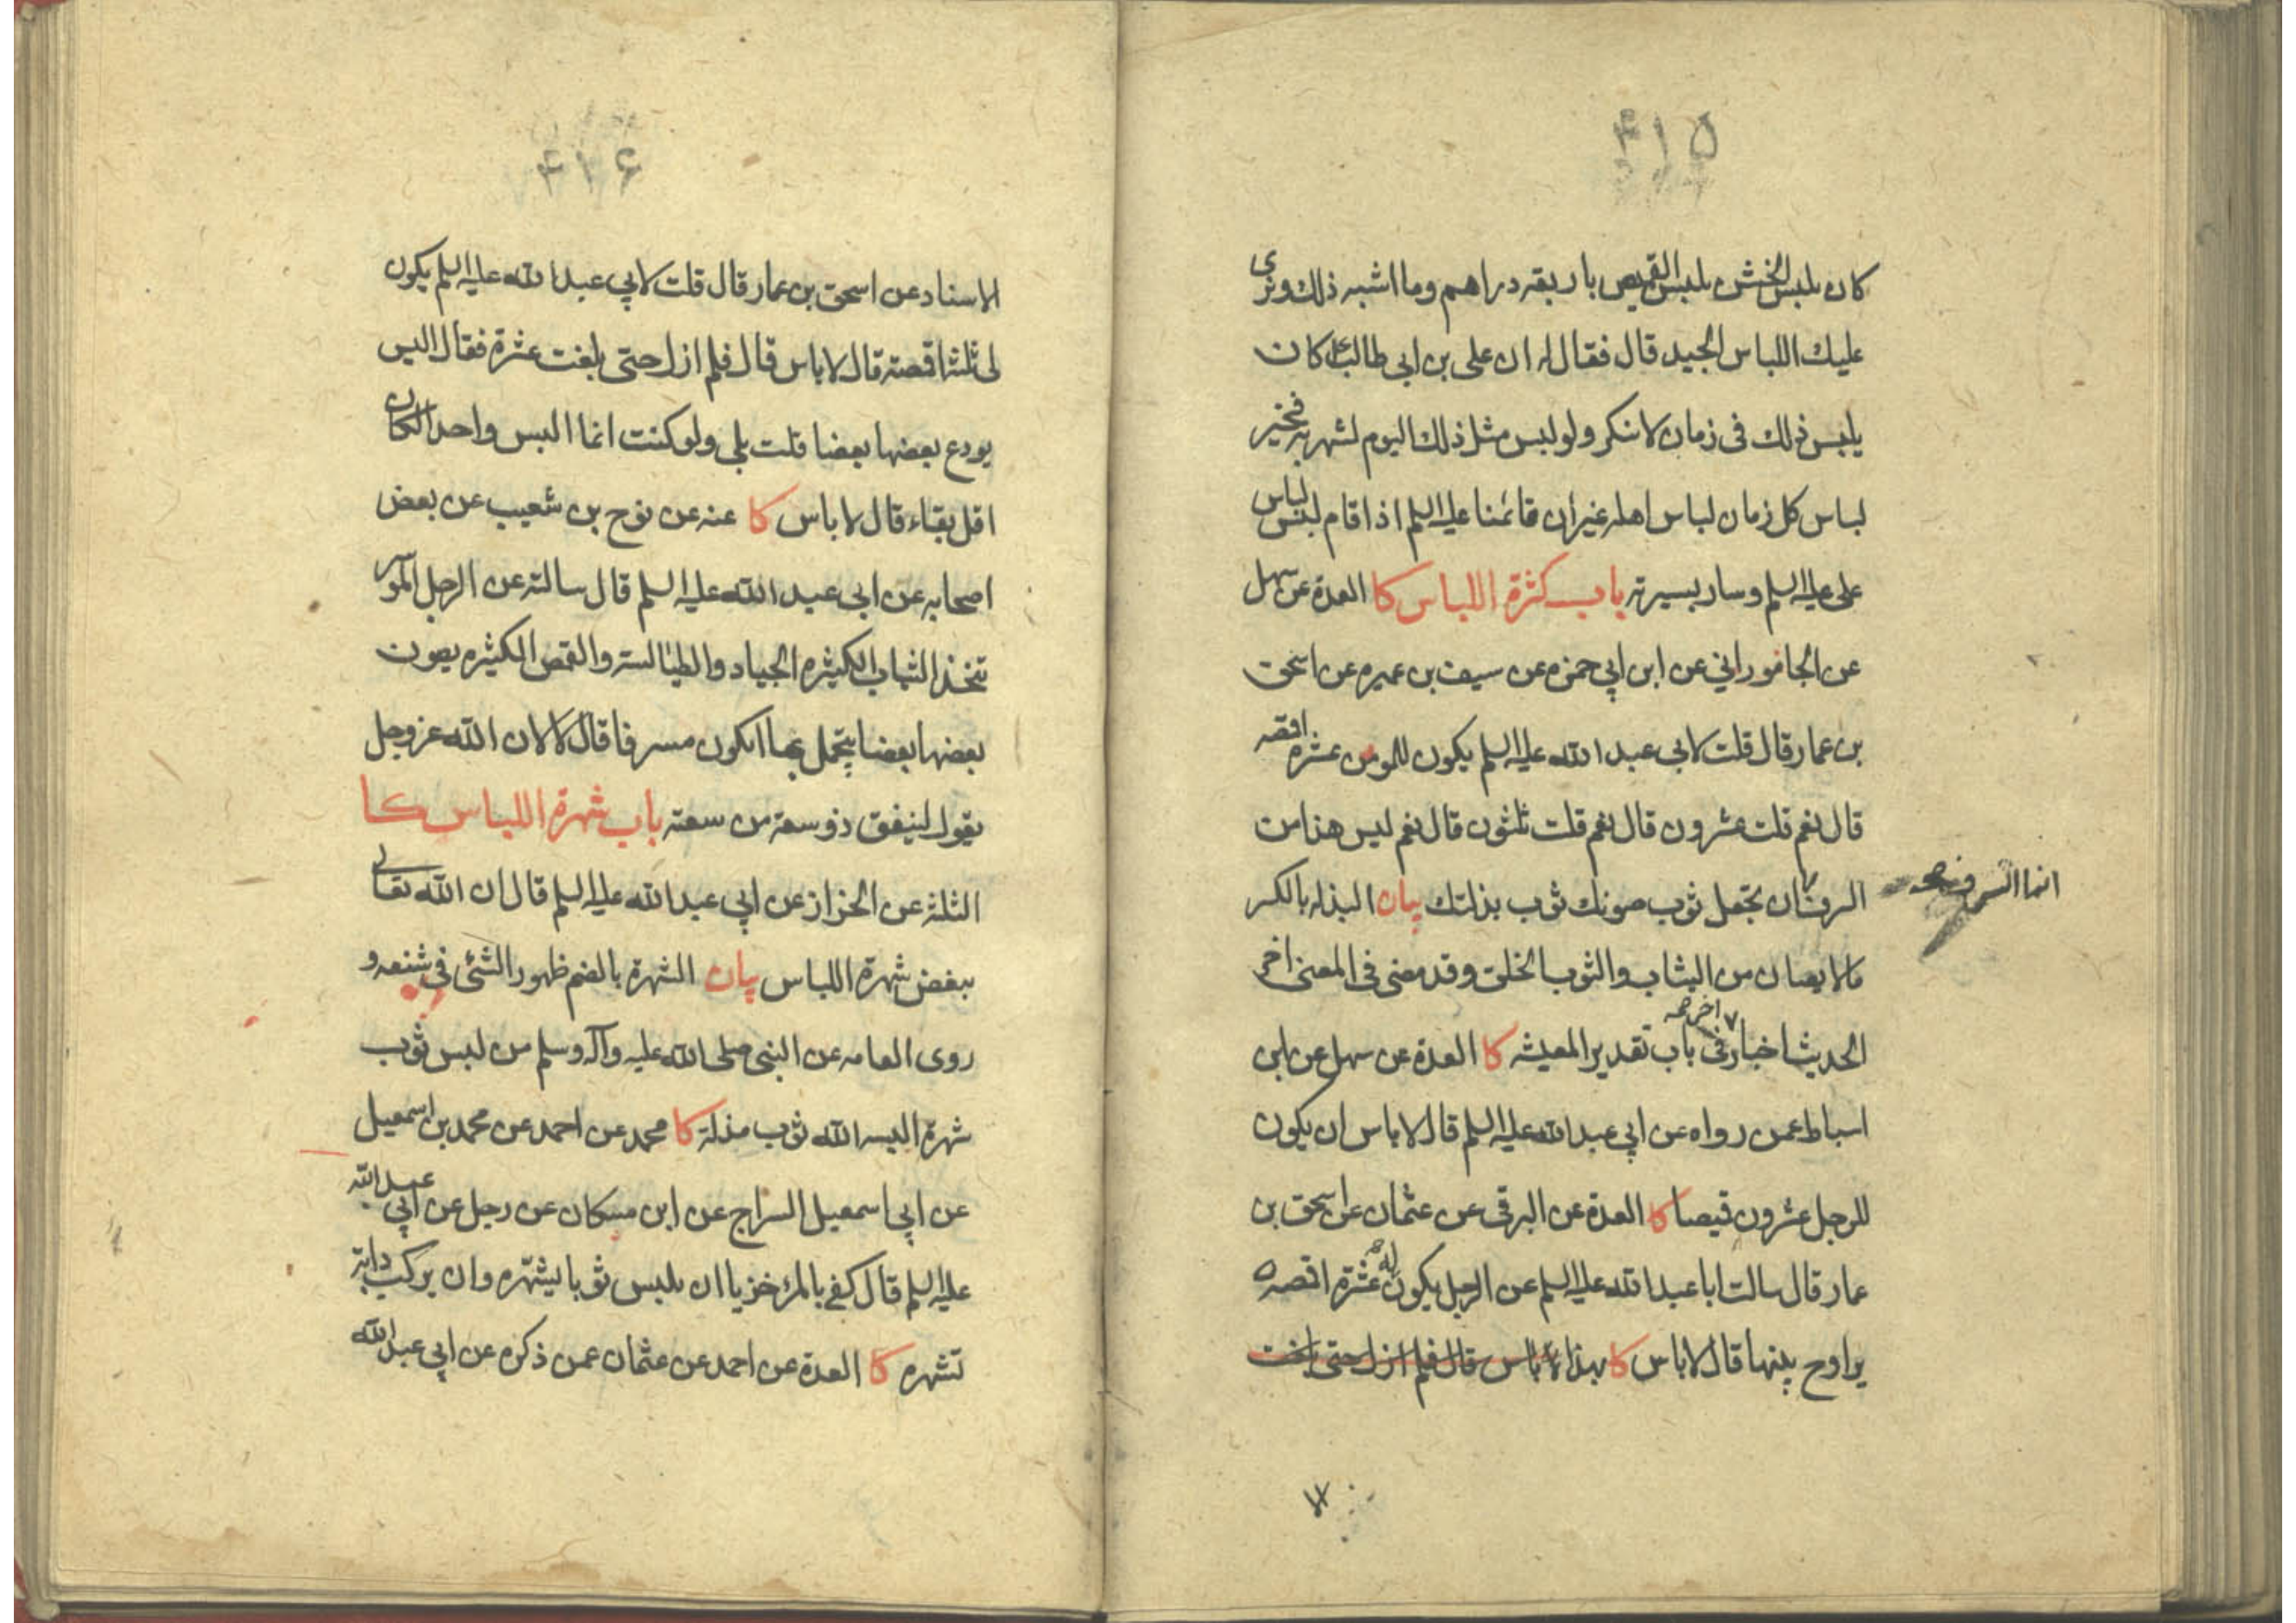 ۴۱۵
كان يلبس الخشن يلبس القميص باربعه دراهم وما اشبه ذلك ونرى
عليك اللباس الجيد قال فقال له ان على بن ابى طالب ع كان
يلبس ذلك فى زمان لا ينكر ولو لبس مثل ذلك اليوم لشهر به فخير
لباس كل زمان لباس اهله غير ان قائمنا عليه السلم اذا قام لبس لباس
على عليه السلم وسار بسيرته باب كثرة اللباس كا العدة عن سهل
عن الجامورانى عن ابن ابي حمزه عن سيف بن عميره عن اسحق
بن عمار قال قلت لابى عبد الله عليه السلم يكون للمومن عشره اقمصه
قال نعم قلت عشرون قال نعم قلت ثلثون قال نعم ليس هذا من
السرف ان تجعل ثوب صونك ثوب بذلتك بيان البذله بالكسر
انما السرف صح
مالا يصان من الثياب والثوب الخلق وقد مضى فى المعنى اخر
الحديث اخبار فى باب تقدير المعيشه كا العدة عن سهل عن ابن
اخر صح
اسباط عمن رواه عن ابي عبد الله عليه السلم قال لا باس ان يكون
للرجل عشرون قميصا كا العدة عن البرقى عن عثمان عن اسحق بن
عمار قال سالت ابا عبد الله عليه السلم عن الرجل يكون له عشرة اقمصه
يراوح بينها قال لا باس كا بهذا لا باس قال فلم ازل حتى بلغت
۴۱۶
الاسناد عن اسحق بن عمار قال قلت لابي عبد الله عليه السلم يكون
لى ثلثة اقمصة قال لا باس قال فلم ازل حتى بلغت عشرة فقال اليس
يودع بعضها بعضا قلت بلى ولو كنت انما البس واحدا لكان
اقل بقاء قال لا باس كا عنه عن نوح بن شعيب عن بعض
اصحابه عن ابى عبد الله عليه السلم قال سالته عن الرجل الموسر
يتخذ الثياب الكثيره الجياد والطيالسة والقمص الكثيره يصون
بعضها بعضا يتجمل بها ايكون مسرفا قال لا لان الله عز وجل
يقول لينفق ذو سعة من سعته باب شهرة اللباس كا
الثلثة عن الخزاز عن ابي عبد الله عليه السلم قال ان الله تعالى
يبغض شهرة اللباس بيان الشهرة بالضم ظهور الشئ فى شنعه و
روى العامه عن النبى صلى الله عليه وآله وسلم من لبس ثوب
شهرة البسه الله ثوب مذلة كا محمد عن احمد عن محمد بن اسمعيل
عن ابي اسمعيل السراج عن ابن مسكان عن رجل عن ابي عبد الله
عليه السلم قال كفى بالمرء خزيا ان يلبس ثوبا يشهره وان يركب دابة
تشهره كا العدة عن احمد عن عثمان عمن ذكره عن ابى عبد الله